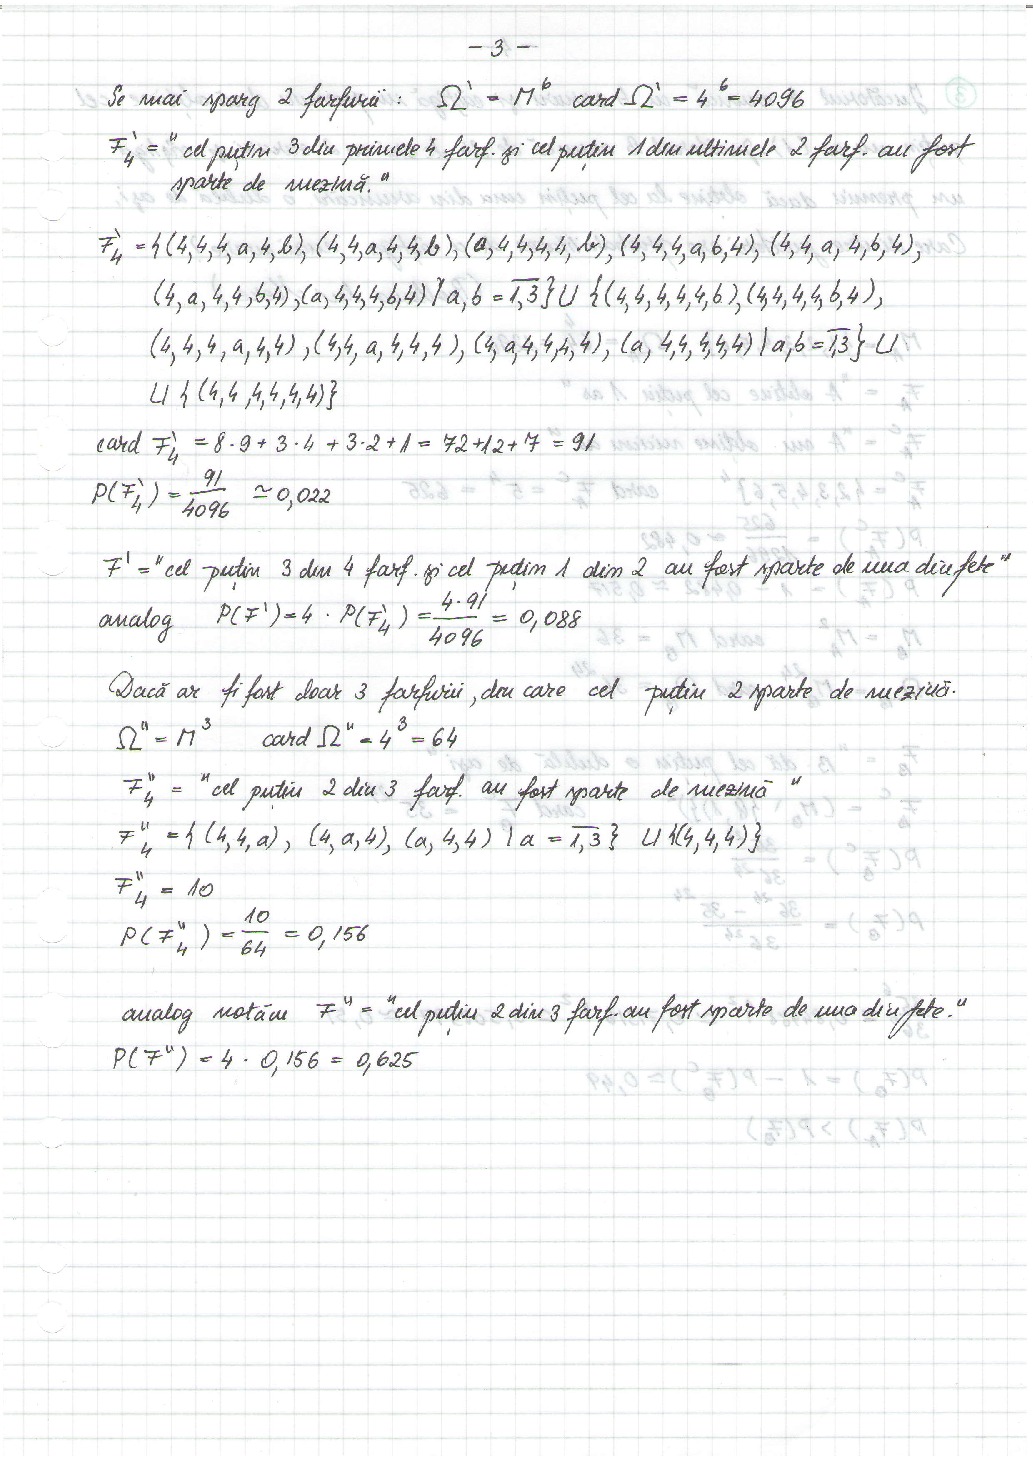 - 3 -
Se mai sparg 2 farfurii : Ω' = M^6 card Ω' = 4^6 = 4096
F'_4 = "cel puțin 3 din primele 4 farf. și cel puțin 1 din ultimele 2 farf. au fost
sparte de mezină."
F'_4 = {(4,4,4,a,4,b), (4,4,a,4,4,b), (a,4,4,4,4,b), (4,4,4,a,b,4), (4,4,a,4,b,4),
(4,a,4,4,b,4), (a,4,4,4,b,4) | a,b = 1,3} ∪ {(4,4,4,4,4,b), (4,4,4,4,b,4),
(4,4,4,a,4,4), (4,4,a,4,4,4), (4,a,4,4,4,4), (a,4,4,4,4,4) | a,b = 1,3} ∪
∪ {(4,4,4,4,4,4)}
card F'_4 = 8·9 + 3·4 + 3·2 + 1 = 72+12+7 = 91
P(F'_4) = 91/4096 ≃ 0,022
F' = "cel puțin 3 din 4 farf. și cel puțin 1 din 2 au fost sparte de una din fete"
analog P(F') = 4 · P(F'_4) = 4·91/4096 = 0,088
Dacă ar fi fost doar 3 farfurii, din care cel puțin 2 sparte de mezină.
Ω" = M^3 card Ω" = 4^3 = 64
F"_4 = "cel puțin 2 din 3 farf. au fost sparte de mezină"
F"_4 = {(4,4,a), (4,a,4), (a,4,4) | a = 1,3} ∪ {(4,4,4)}
F"_4 = 10
P(F"_4) = 10/64 = 0,156
analog notăm F" = "cel puțin 2 din 3 farf. au fost sparte de una din fete."
P(F") = 4 · 0,156 = 0,625